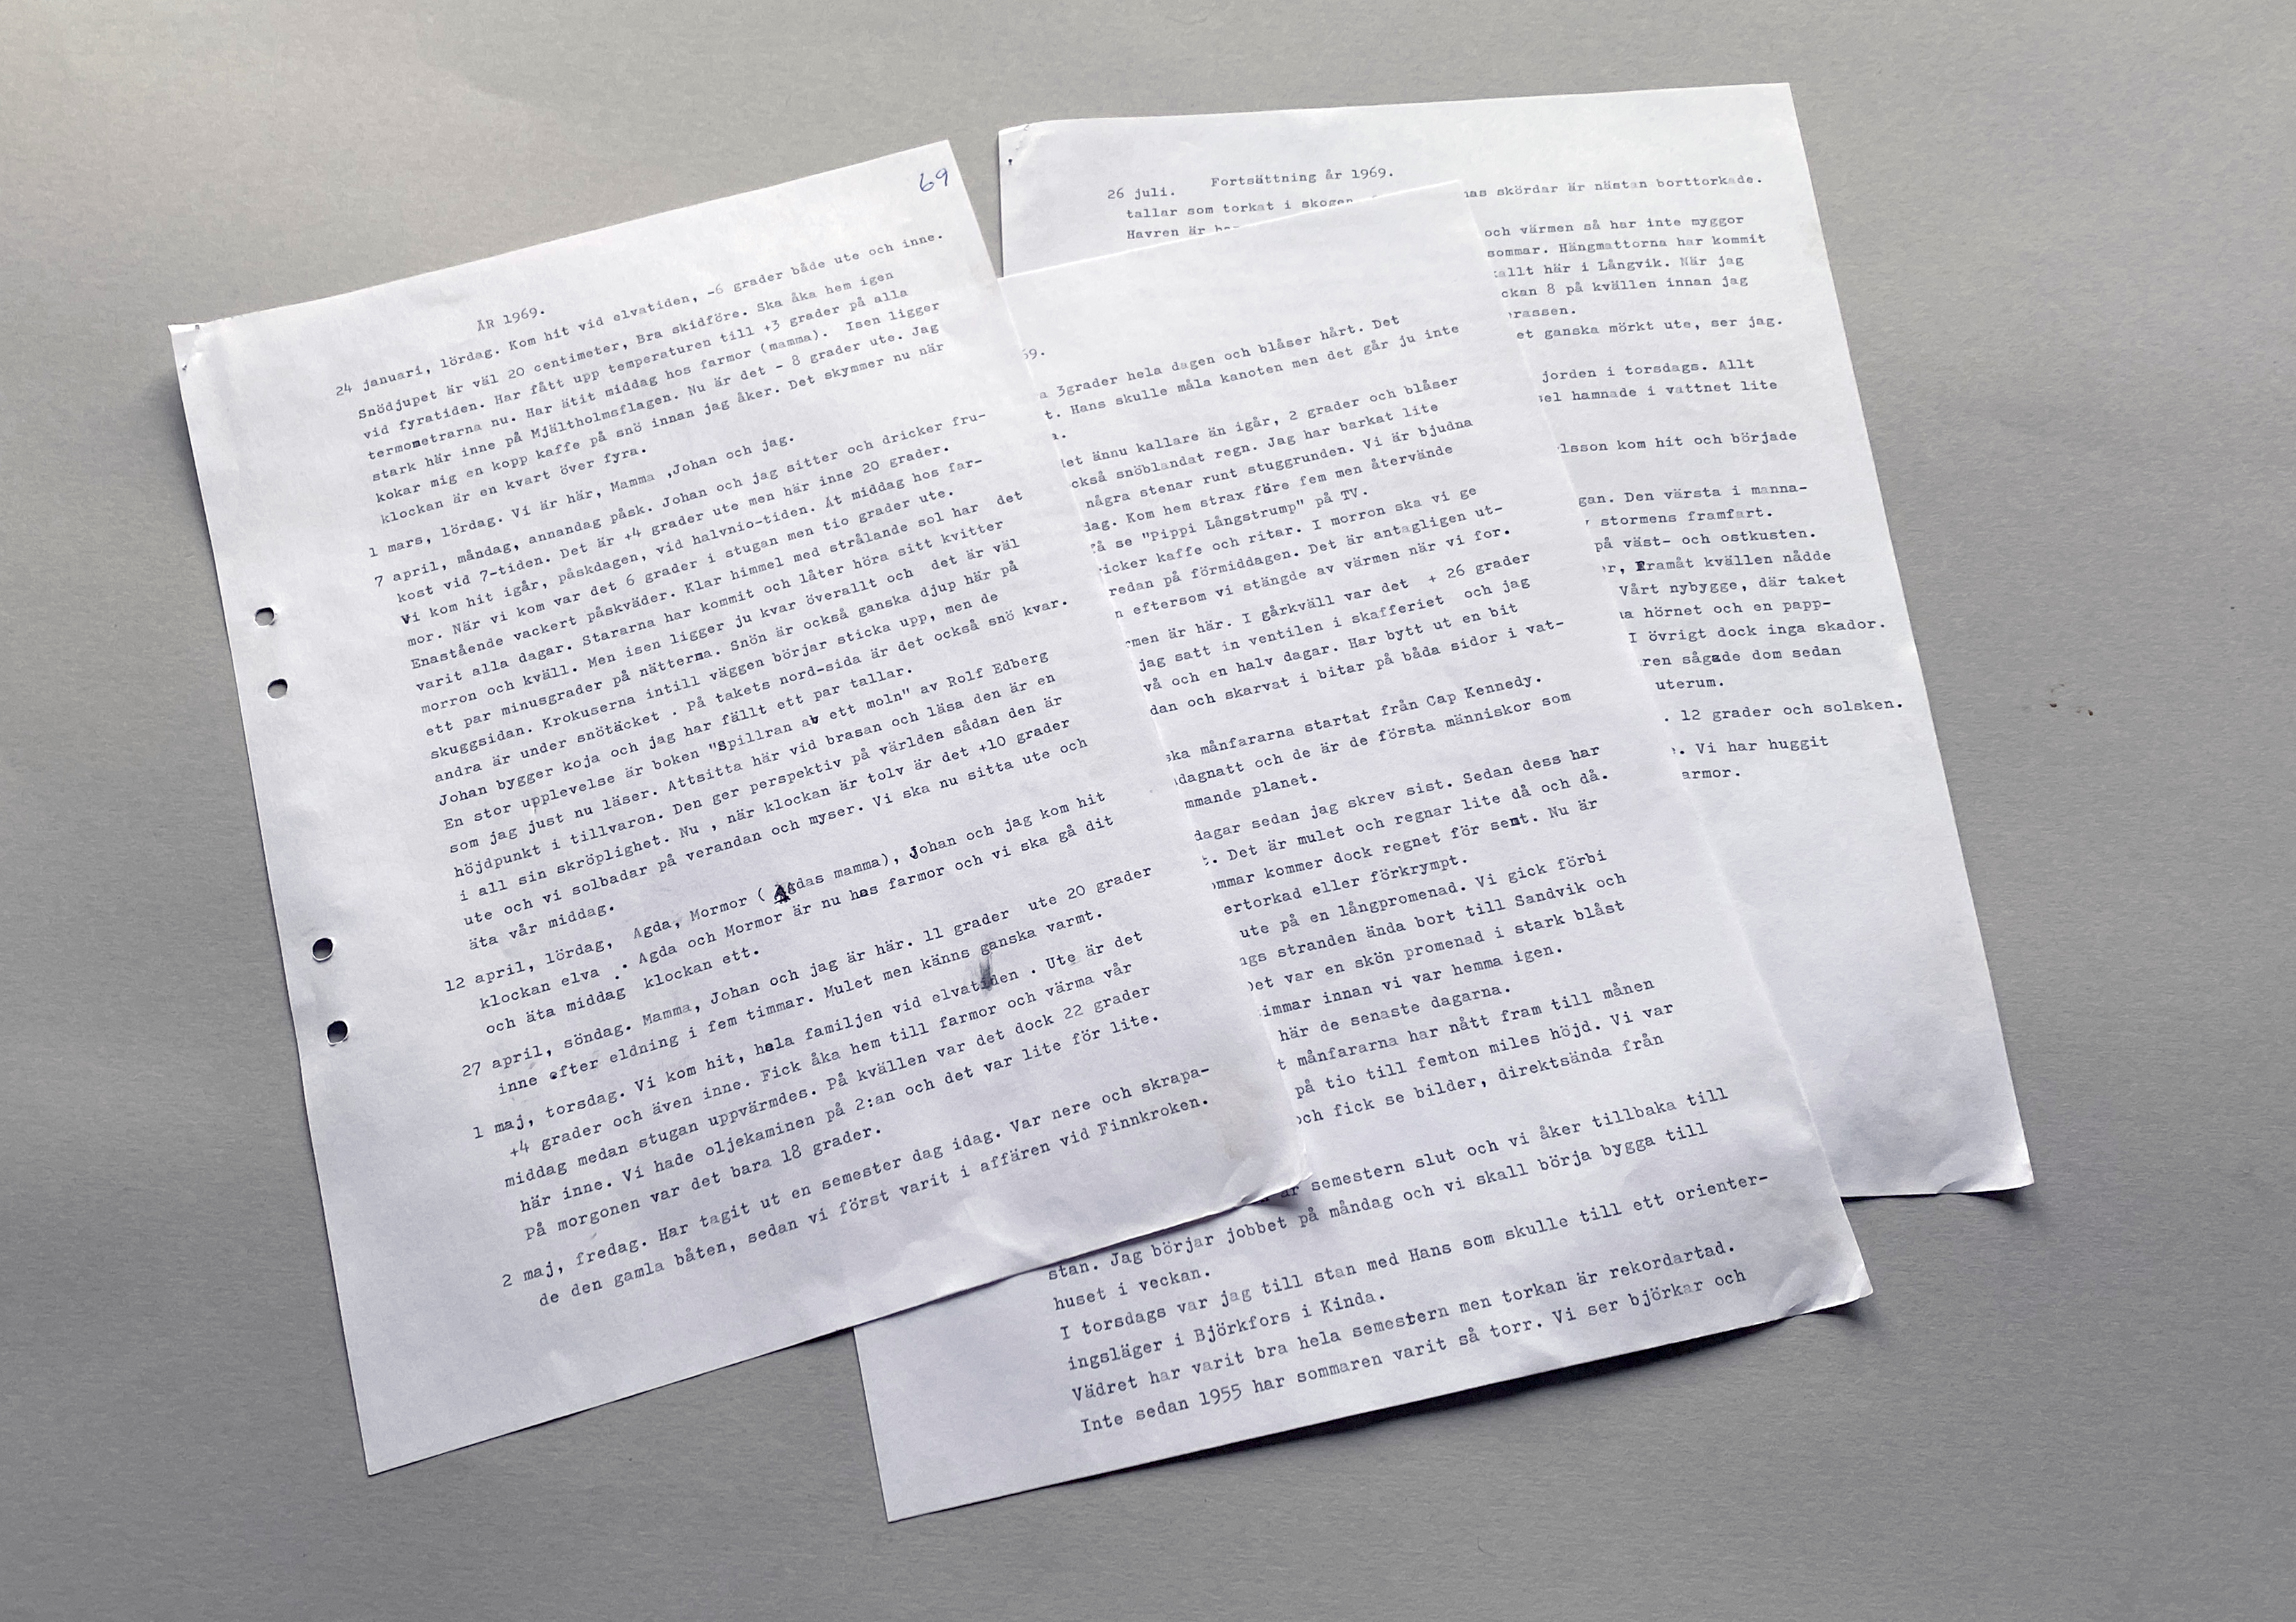 69
ÅR 1969.
24 januari, lördag. Kom hit vid elvatiden, -6 grader både ute och inne.
Snödjupet är väl 20 centimeter, Bra skidföre. Ska åka hem igen
vid fyratiden. Har fått upp temperaturen till +3 grader på alla
termometrarna nu. Har ätit middag hos farmor (mamma). Isen ligger
stark här inne på Mjältholmsflagen. Nu är det - 8 grader ute. Jag
kokar mig en kopp kaffe på snö innan jag åker. Det skymmer nu när
klockan är en kvart över fyra.
1 mars, lördag. Vi är här, Mamma ,Johan och jag.
7 april, måndag, annandag påsk. Johan och jag sitter och dricker fru-
kost vid 7-tiden. Det är +4 grader ute men här inne 20 grader.
Vi kom hit igår, påskdagen, vid halvnio-tiden. Åt middag hos far-
mor. När vi kom var det 6 grader i stugan men tio grader ute.
Enastående vackert påskväder. Klar himmel med strålande sol har det
varit alla dagar. Stararna har kommit och låter höra sitt kvitter
morron och kväll. Men isen ligger ju kvar överallt och det är väl
ett par minusgrader på nätterna. Snön är också ganska djup här på
skuggsidan. Krokuserna intill väggen börjar sticka upp, men de
andra är under snötäcket . På takets nord-sida är det också snö kvar.
Johan bygger koja och jag har fällt ett par tallar.
En stor upplevelse är boken "Spillran av ett moln" av Rolf Edberg
som jag just nu läser. Attsitta här vid brasan och läsa den är en
höjdpunkt i tillvaron. Den ger perspektiv på världen sådan den är
i all sin skröplighet. Nu , när klockan är tolv är det +10 grader
ute och vi solbadar på verandan och myser. Vi ska nu sitta ute och
äta vår middag.
12 april, lördag, Agda, Mormor ( Agdas mamma), Johan och jag kom hit
klockan elva . Agda och Mormor är nu hos farmor och vi ska gå dit
och äta middag klockan ett.
27 april, söndag. Mamma, Johan och jag är här. 11 grader ute 20 grader
inne efter eldning i fem timmar. Mulet men känns ganska varmt.
1 maj, torsdag. Vi kom hit, hela familjen vid elvatiden . Ute är det
+4 grader och även inne. Fick åka hem till farmor och värma vår
middag medan stugan uppvärmdes. På kvällen var det dock 22 grader
här inne. Vi hade oljekaminen på 2:an och det var lite för lite.
På morgonen var det bara 18 grader.
2 maj, fredag. Har tagit ut en semester dag idag. Var nere och skrapa-
de den gamla båten, sedan vi först varit i affären vid Finnkroken.
69.
3grader hela dagen och blåser hårt. Det
t. Hans skulle måla kanoten men det går ju inte
det ännu kallare än igår, 2 grader och blåser
också snöblandat regn. Jag har barkat lite
några stenar runt stuggrunden. Vi är bjudna
dag. Kom hem strax före fem men återvände
få se "Pippi Långstrump" på TV.
ricker kaffe och ritar. I morron ska vi ge
redan på förmiddagen. Det är antagligen ut-
n eftersom vi stängde av värmen när vi for.
rmen är här. I gårkväll var det + 26 grader
jag satt in ventilen i skafferiet och jag
vå och en halv dagar. Har bytt ut en bit
dan och skarvat i bitar på båda sidor i vat-
ska månfararna startat från Cap Kennedy.
dagnatt och de är de första människor som
mmande planet.
dagar sedan jag skrev sist. Sedan dess har
t. Det är mulet och regnar lite då och då.
ommar kommer dock regnet för sent. Nu är
ertorkad eller förkrympt.
ute på en långpromenad. Vi gick förbi
ngs stranden ända bort till Sandvik och
Det var en skön promenad i stark blåst
timmar innan vi var hemma igen.
här de senaste dagarna.
t månfararna har nått fram till månen
på tio till femton miles höjd. Vi var
och fick se bilder, direktsända från
är semestern slut och vi åker tillbaka till
stan. Jag börjar jobbet på måndag och vi skall börja bygga till
huset i veckan.
I torsdags var jag till stan med Hans som skulle till ett orienter-
ingsläger i Björkfors i Kinda.
Vädret har varit bra hela semestern men torkan är rekordartad.
Inte sedan 1955 har sommaren varit så torr. Vi ser björkar och
Fortsättning år 1969.
26 juli.
tallar som torkat i skogen nas skördar är nästan borttorkade.
Havren är
och värmen så har inte myggor
sommar. Hängmattorna har kommit
allt här i Långvik. När jag
ckan 8 på kvällen innan jag
rassen.
et ganska mörkt ute, ser jag.
jorden i torsdags. Allt
sel hamnade i vattnet lite
lsson kom hit och började
gan. Den värsta i manna-
stormens framfart.
på väst- och ostkusten.
r, Framåt kvällen nådde
Vårt nybygge, där taket
a hörnet och en papp-
I övrigt dock inga skador.
ren sågade dom sedan
uterum.
. 12 grader och solsken.
. Vi har huggit
armor.